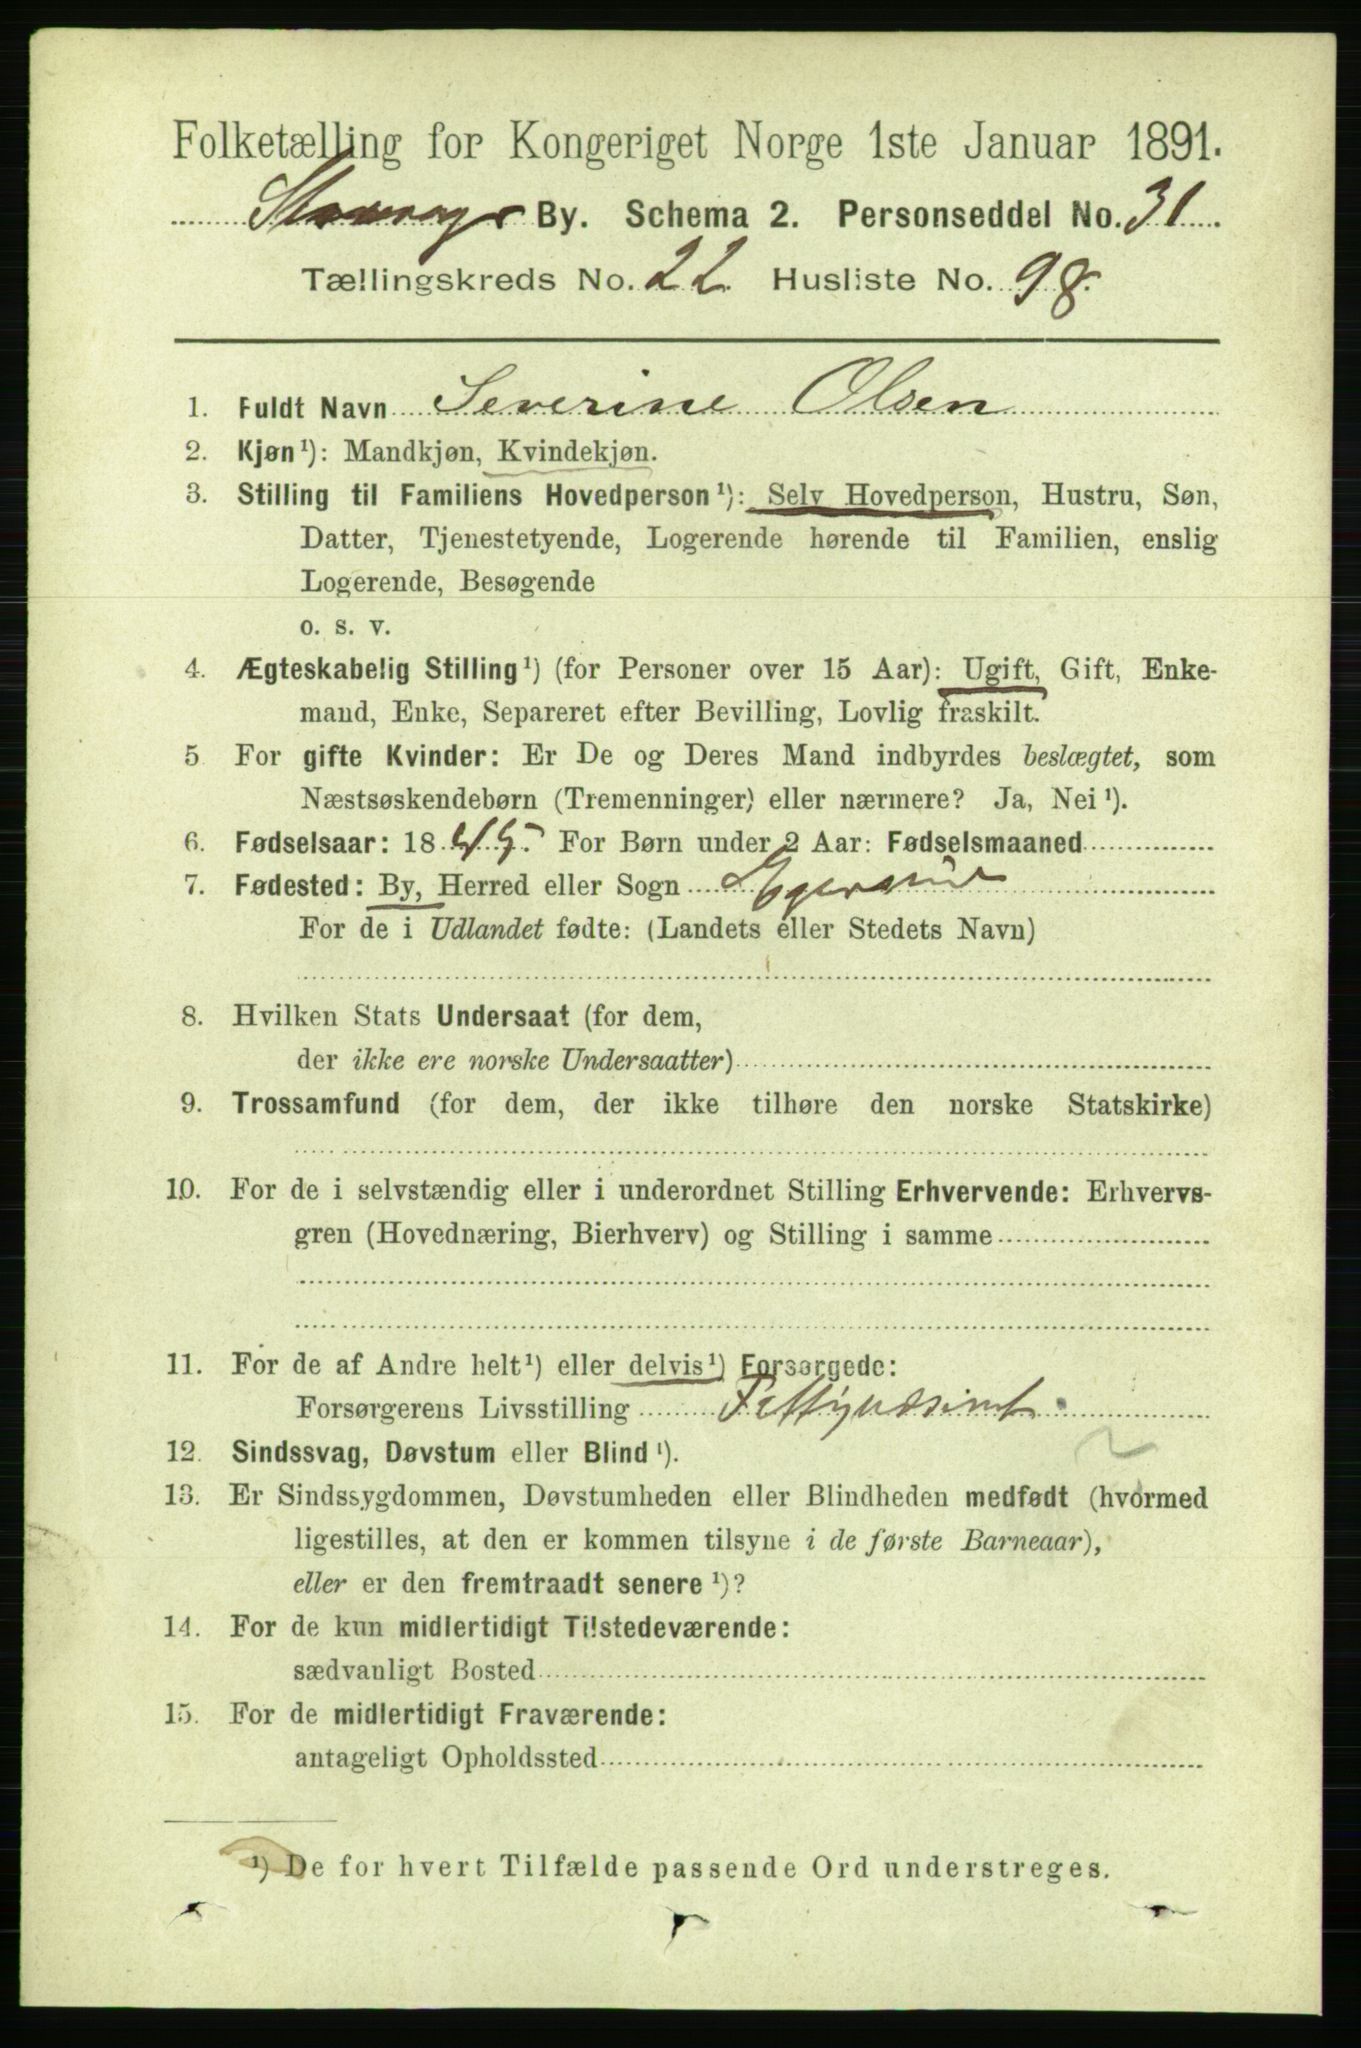 Folketælling for Kongeriget Norge 1ste Januar 1891.
By. Schema 2. Personseddel No. 31
Tællingskreds No. 22 Husliste No. 98.
1. Fuldt Navn Severine Olsen
2. Kjøn¹): Mandkjøn, Kvindekjøn.
3. Stilling til Familiens Hovedperson¹): Selv Hovedperson, Hustru, Søn,
Datter, Tjenestetyende, Logerende hørende til Familien, enslig
Logerende, Besøgende
o. s. v.
4. Ægteskabelig Stilling¹) (for Personer over 15 Aar): Ugift, Gift, Enke-
mand, Enke, Separeret efter Bevilling, Lovlig fraskilt.
5 For gifte Kvinder: Er De og Deres Mand indbyrdes beslægtet, som
Næstsøskendebørn (Tremenninger) eller nærmere? Ja, Nei¹).
6. Fødselsaar: 18 45. For Børn under 2 Aar: Fødselsmaaned
7. Fødested: By, Herred eller Sogn Egersund
For de i Udlandet fødte: (Landets eller Stedets Navn)
8. Hvilken Stats Undersaat (for dem,
der ikke ere norske Undersaatter)
9. Trossamfund (for dem, der ikke tilhøre den norske Statskirke)
10. For de i selvstændig eller i underordnet Stilling Erhvervende: Erhvervs-
gren (Hovednæring, Bierhverv) og Stilling i samme
11. For de af Andre helt¹) eller delvis¹) Forsørgede:
Forsørgerens Livsstilling
12. Sindssvag, Døvstum eller Blind¹).
13. Er Sindssygdommen, Døvstumheden eller Blindheden medfødt (hvormed
ligestilles, at den er kommen tilsyne i de første Barneaar),
eller er den fremtraadt senere¹)?
14. For de kun midlertidigt Tilstedeværende:
sædvanligt Bosted
15. For de midlertidigt Fraværende:
antageligt Opholdssted
¹) De for hvert Tilfælde passende Ord understreges.